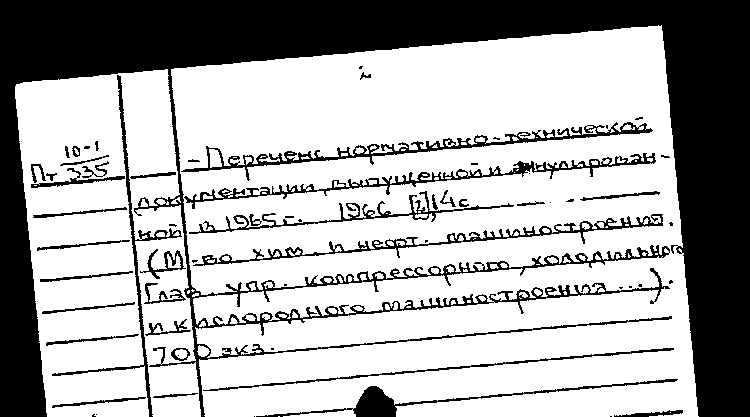 i
Пт 10-1/335
- Перечень нормативно-технической
документации, выпущенной и аннулирован-
ной в 1965 г. 1966 [2], 14 с.
(М-во хим. и нефт. машиностроения.
Глав. упр. компрессорного, холодильного
и кислородного машиностроения...).
700 экз.